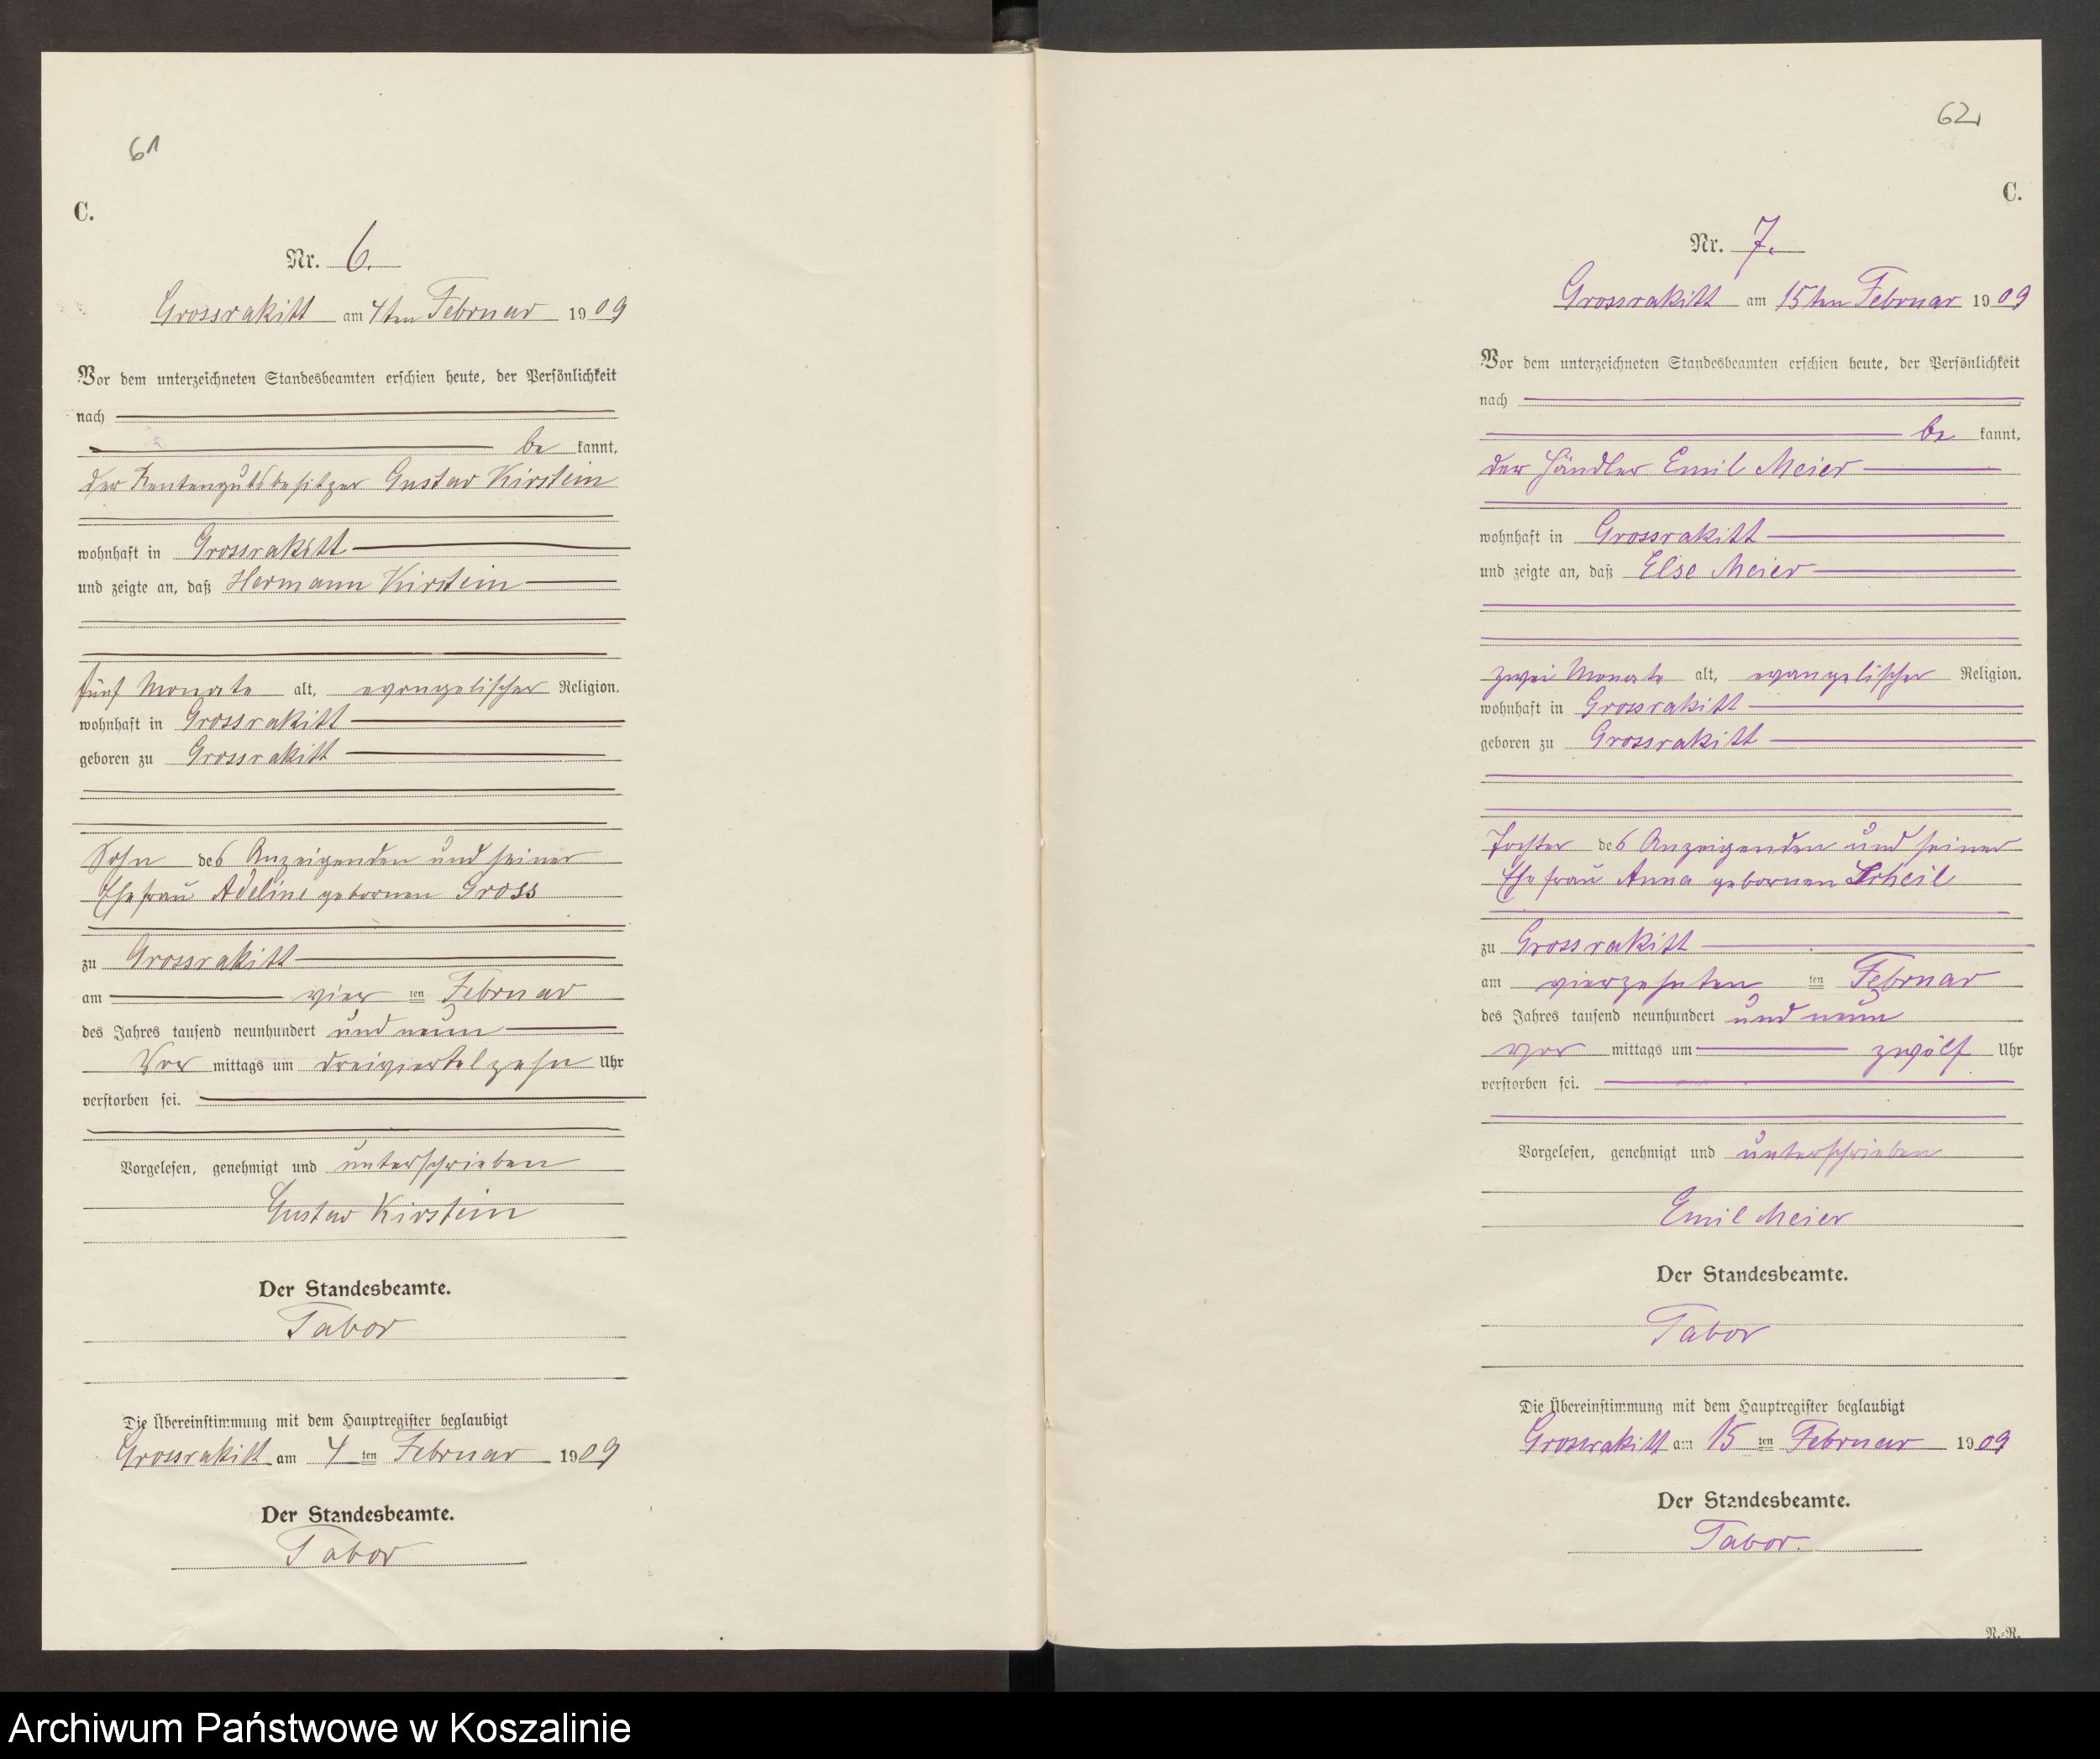 61
C.
Nr. 6.
Grossrakitt am 4ten Februar 1909
Vor dem unterzeichneten Standesbeamten erschien heute, der Persönlichkeit
nach
be kannt,
der Rentengutsbesitzer Gustav Kirstein
wohnhaft in Grossrakitt
und zeigte an, daß Hermann Kirstein
fünf Monate alt, evangelischer Religion,
wohnhaft in Grossrakitt
geboren zu Grossrakitt
Sohn des Anzeigenden und seiner
Ehefrau Adeline gebornen Gross
zu Grossrakitt
am vier ten Februar
des Jahres tausend neunhundert und neun
Vor mittags um dreiviertelzehn Uhr
verstorben sei.
Vorgelesen, genehmigt und unterschrieben
Gustav Kirstein
Der Standesbeamte.
Tabor
Die Übereinstimmung mit dem Hauptregister beglaubigt
Grossrakitt am 4 ten Februar 1909
Der Standesbeamte.
Tabor
62
C.
Nr. 7.
Grossrakitt am 15ten Februar 1909
Vor dem unterzeichneten Standesbeamten erschien heute, der Persönlichkeit
nach
be kannt,
der Händler Emil Meier
wohnhaft in Grossrakitt
und zeigte an, daß Else Meier
zwei Monate alt, evangelischer Religion,
wohnhaft in Grossrakitt
geboren zu Grossrakitt
Tochter des Anzeigenden und seiner
Ehefrau Anna gebornen
zu Grossrakitt
am vierzehnten ten Februar
des Jahres tausend neunhundert und neun
vor mittags um zwölf Uhr
verstorben sei.
Vorgelesen, genehmigt und unterschrieben
Emil Meier
Der Standesbeamte.
Tabor
Die Übereinstimmung mit dem Hauptregister beglaubigt
Grossrakitt am 15 ten Februar 1909
Der Standesbeamte.
Tabor.
N.-R.
Archiwum Państwowe w Koszalinie